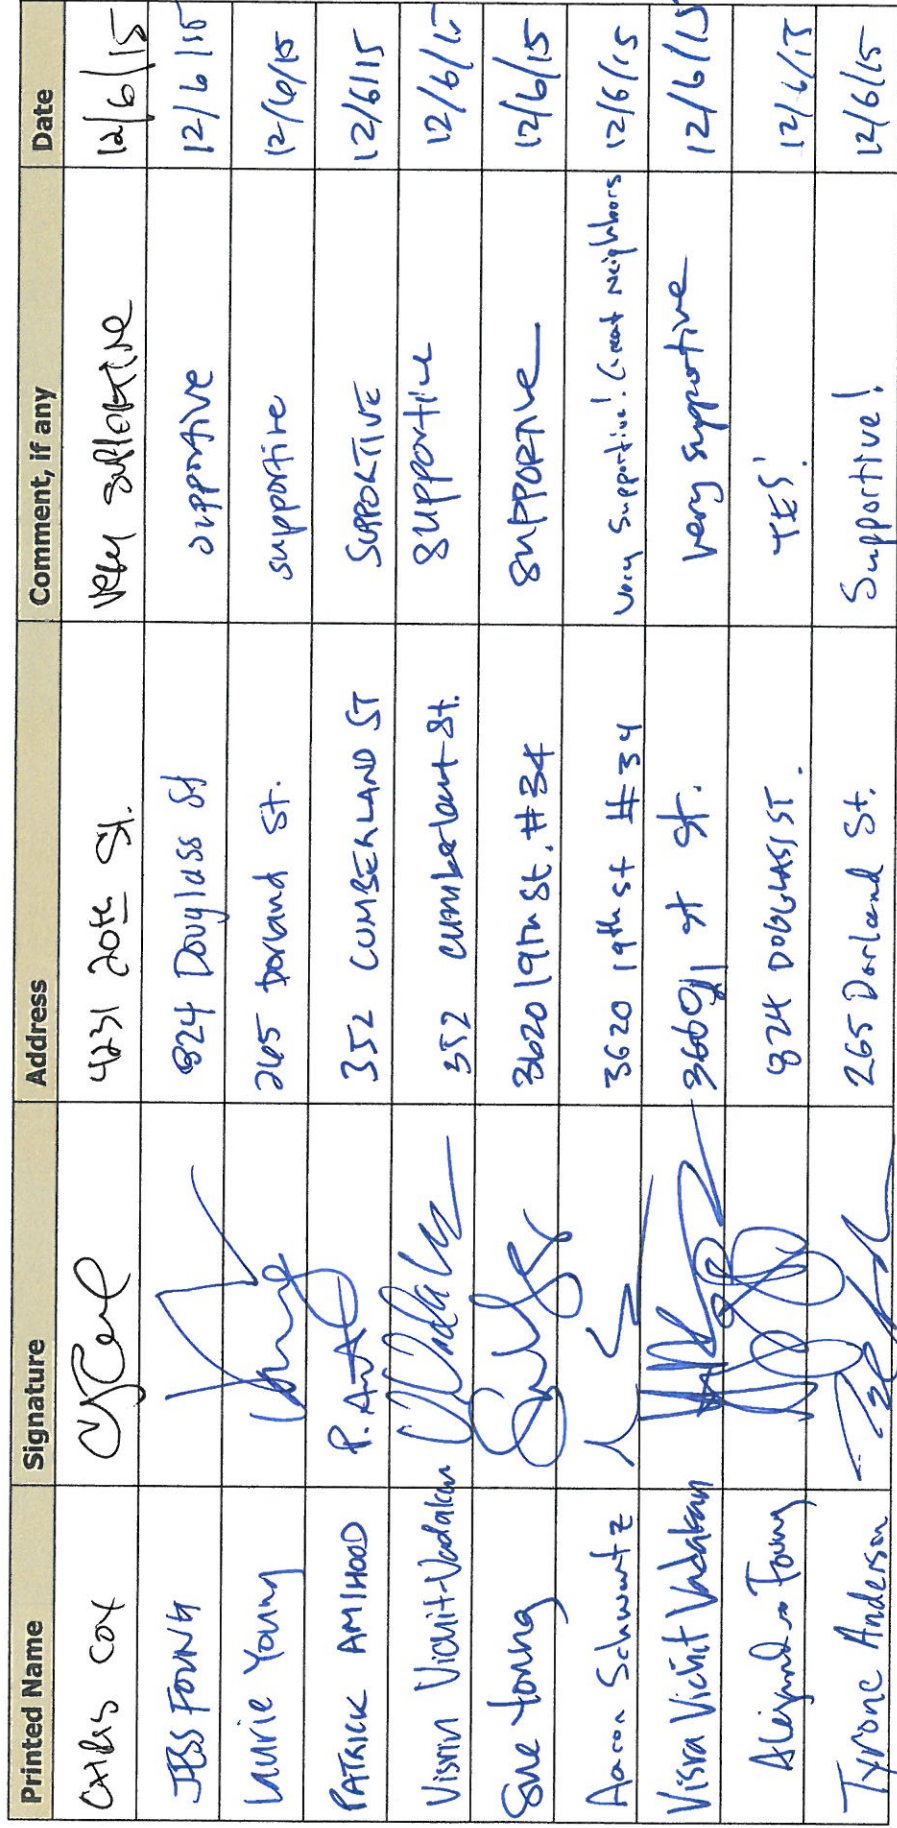 Printed Name Signature Address Comment, if any Date
CHRIS COX 4231 20th St. Very SUPPORTIVE 12/6/15
JESS FOUNG 824 Douglass St supportive 12/6/15
Laurie Young 265 Dorland St. supportive 12/6/15
PATRICK AMIHOOD 352 CUMBERLAND ST SUPPORTIVE 12/6/15
Visrin Vichit-Vadakan 352 cumberland St. supportive 12/6/15
Sue Young 3620 19th St. #34 supportive 12/6/15
Aaron Schwartz 3620 19th st #34 Very Supportive! Great Neighbors 12/6/15
Visra Vichit Vadakan st. very supportive 12/6/15
Alejandro Foung 824 DOUGLASS ST. YES! 12/6/15
Tyrone Anderson 265 Dorland St. Supportive! 12/6/15